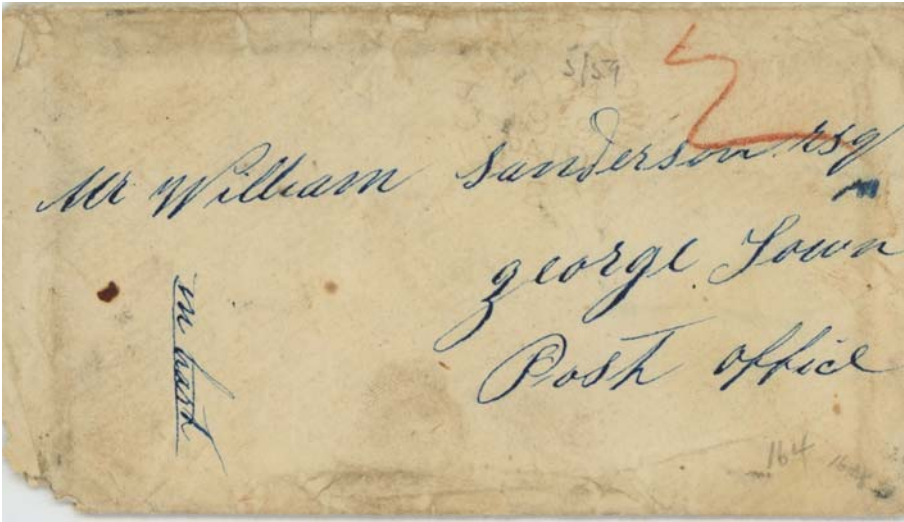 5/59
Mr William Sanderson Esq
george Town
Post office
in hast
164